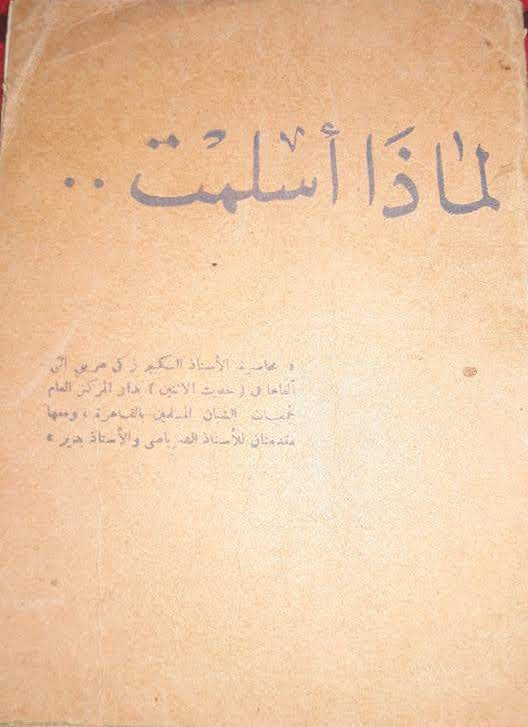 لماذا أسلمت ..
« محاضرة الأستاذ الدكتور زكي عريبي التي
ألقاها في ( حديث الاثنين ) بدار المركز العام
لجمعيات الشبان المسلمين بالقاهرة ، ومعها
مقدمتان للأستاذ الشرباصى والأستاذ »